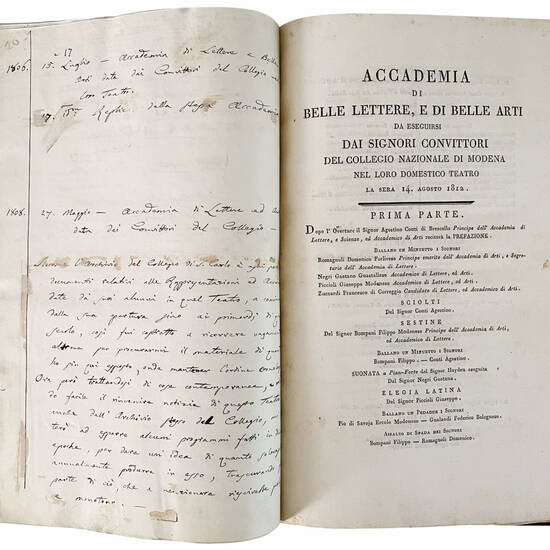 1806.
15. Luglio — Accademia di Lettere e Belle
Arti data dai Convittori del Collegio nel
loro Teatro.
17. Replica della stessa Accademia
1808.
27. Maggio — Accademia di Lettere ed Arti
data dai Convittori del Collegio —
l'Archivio del Collegio di S. Carlo
documenti relativi alle Rappresentazioni ed Accademie
date dai suoi alunni in quel Teatro, a cominciare
dalla sua apertura sino ai primordj di questo
Secolo, così fui costretto a ricercare
altrove per procurarmi il materiale di quanto
ho fin qui esposto, onde mantener l'ordine
Ora però trattandosi di cose contemporanee,
facile il rinvenire notizie di questo Teatro
dall'Archivio stesso del Collegio,
ad esporre alcuni programmi fatti in diverse
epoche, per dare un'idea di quanto
annualmente produrre in esso, trascurando
parte di ciò, che a menzionare riuscirebbe
monotono.
ACCADEMIA
DI
BELLE LETTERE, E DI BELLE ARTI
DA ESEGUIRSI
DAI SIGNORI CONVITTORI
DEL COLLEGIO NAZIONALE DI MODENA
NEL LORO DOMESTICO TEATRO
LA SERA 14. AGOSTO 1812.
PRIMA PARTE.
Dopo l'Overture il Signor Agostino Conti di Brescello Principe dell'Accademia di
Lettere, e Scienze, ed Accademico di Arti reciterà la PREFAZIONE.
BALLANO UN MINUETTO I SIGNORI
Romagnoli Domenico Forlivese Principe emerito dell'Accademia di Arti, e Segre-
tario dell'Accademia di Lettere.
Negri Gaetano Guastallese Accademico di Lettere, ed Arti.
Piccioli Giuseppe Modonese Accademico di Lettere, ed Arti.
Zuccardi Francesco di Correggio Candidato di Lettere, ed Accademico di Arti.
SCIOLTI
Del Signor Conti Agostino.
SESTINE
Del Signor Bompani Filippo Modonese Principe dell'Accademia di Arti,
ed Accademico di Lettere.
BALLANO UN MINUETTO I SIGNORI
Bompani Filippo. — Conti Agostino.
SUONATA a Pian-Forte del Signor Haydn eseguita
Dal Signor Negri Gaetano.
ELEGIA LATINA
Del Signor Piccioli Giuseppe.
BALLANO UN PERAGOR I SIGNORI
Pio di Savoja Ercole Modonese — Gualandi Federico Bolognese.
ASSALTO DI SPADA DEI SIGNORI
Bompani Filippo — Romagnoli Domenico.